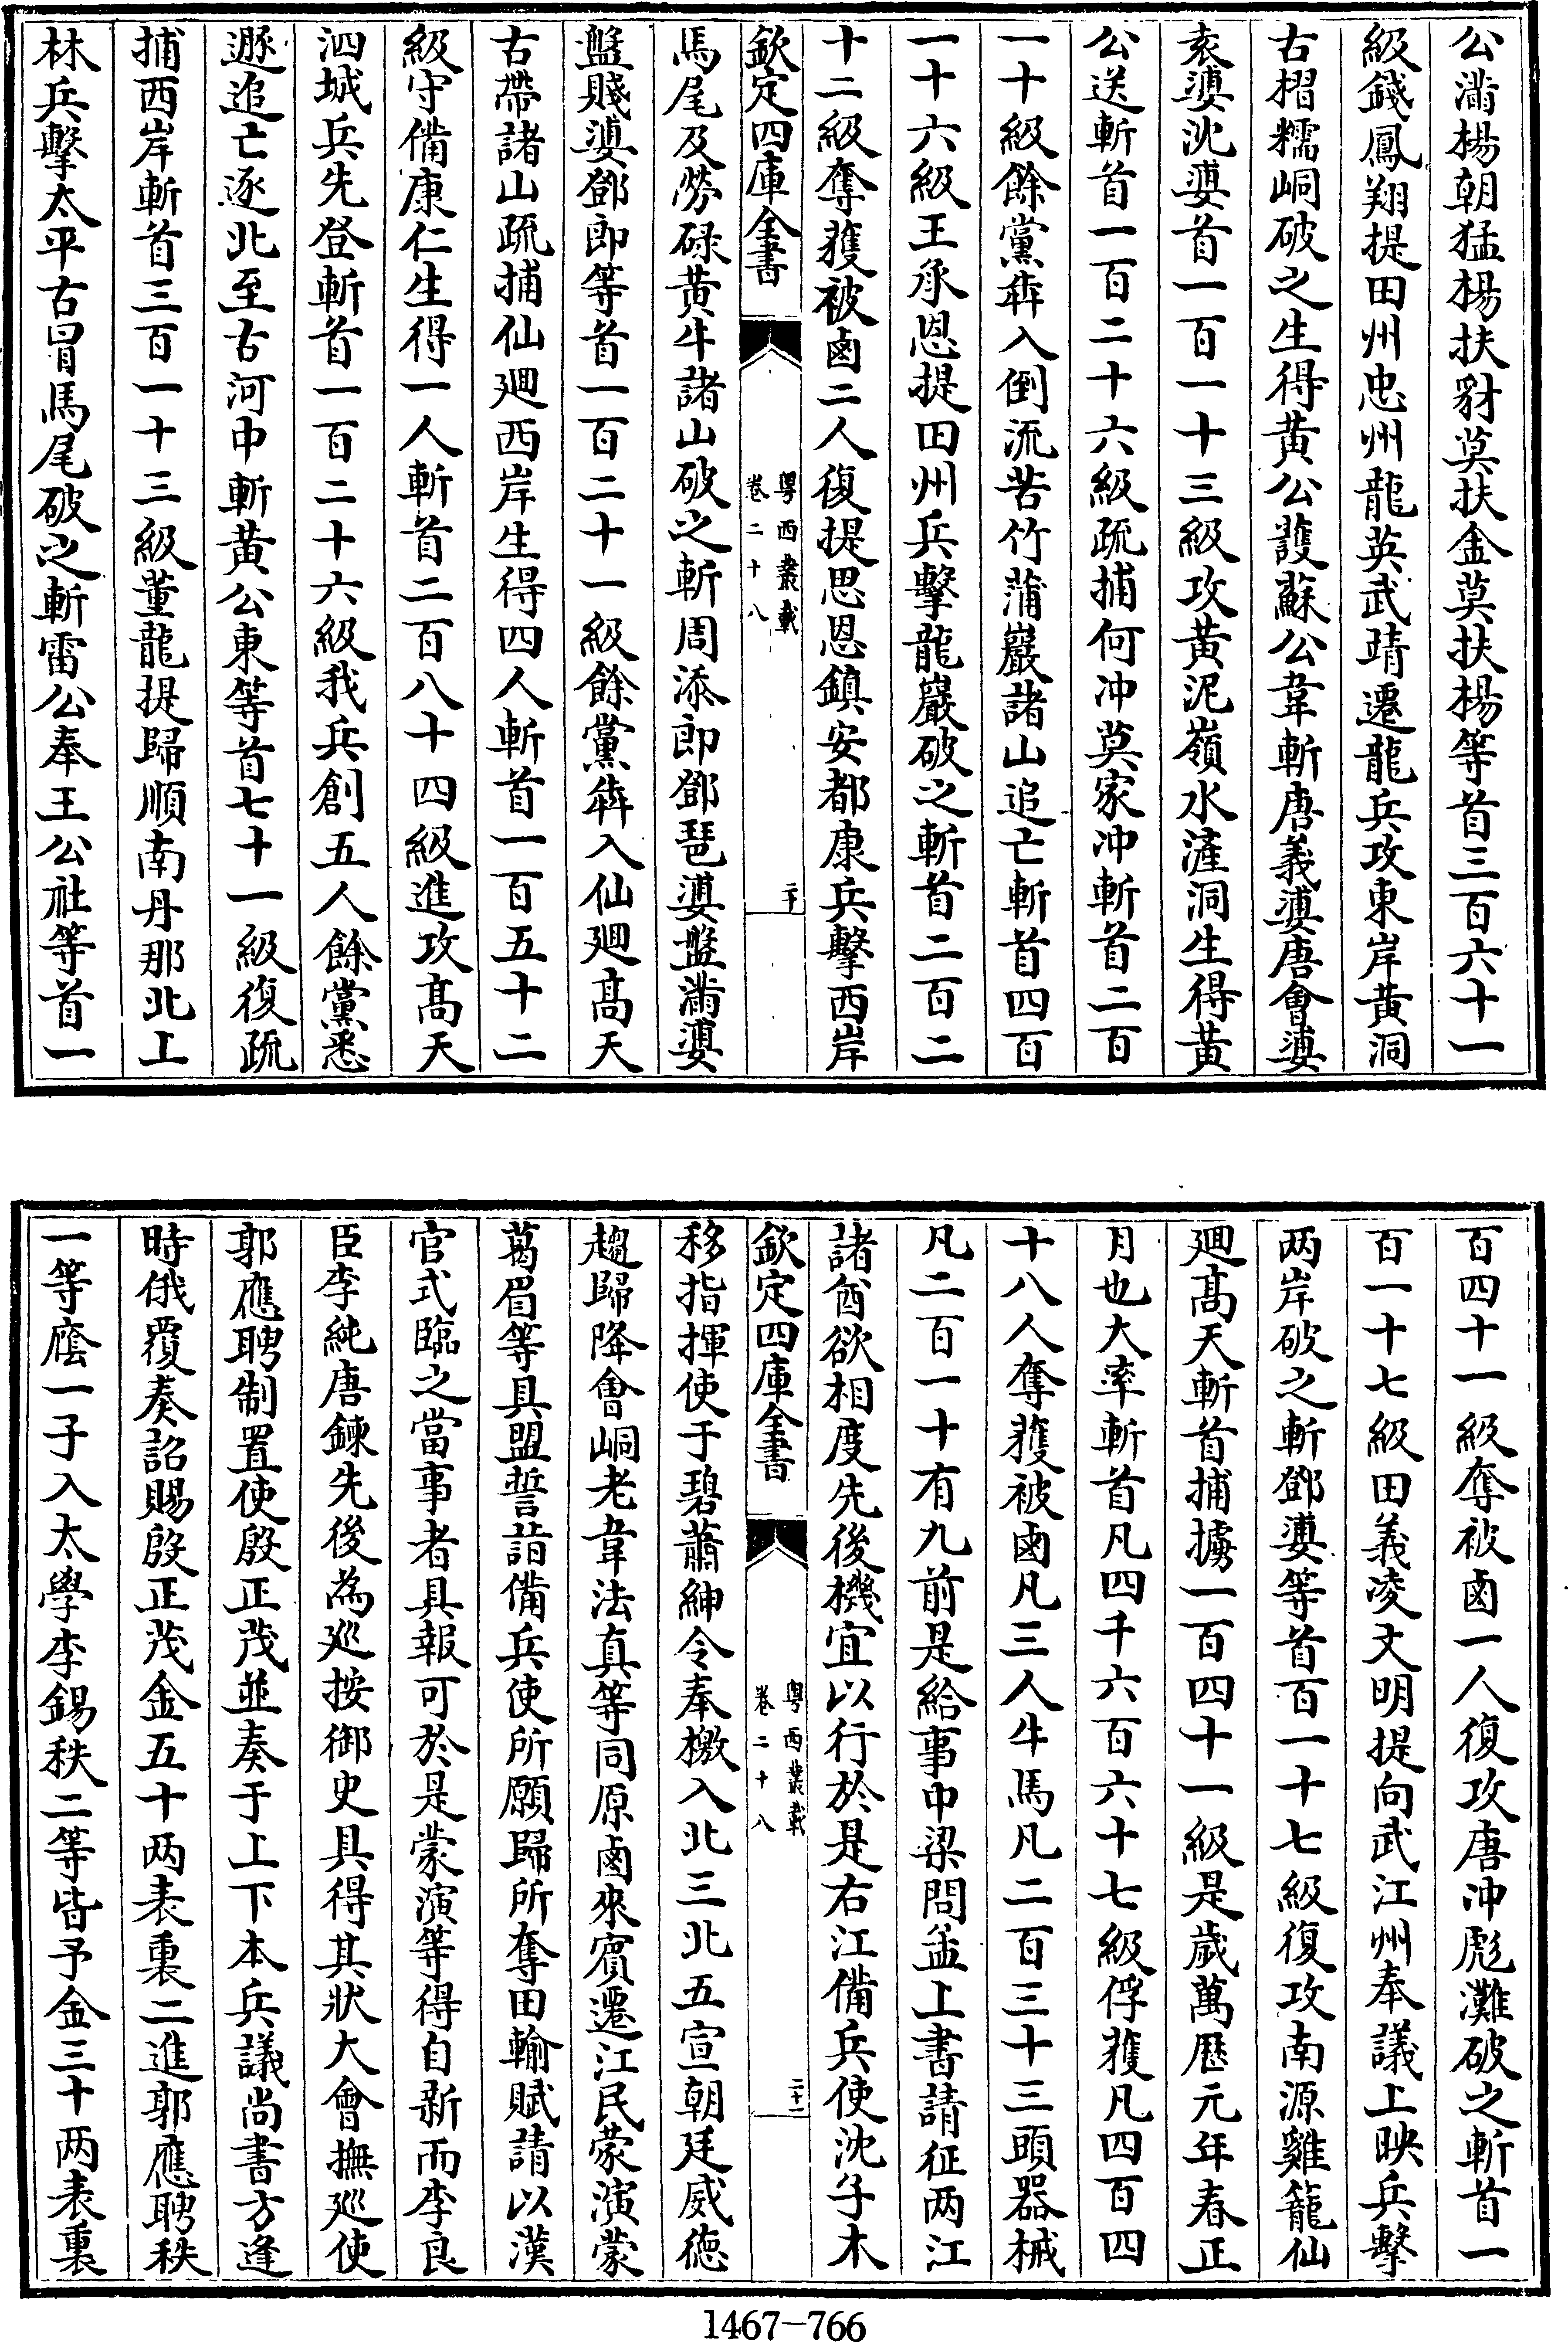 公滿楊朝猛楊扶豺莫扶金莫扶楊等首三百六十一
級錢鳳翔提田州忠州龍英武靖遷龍兵攻東岸黃洞
古摺糯峒破之生得黃公護蘇公韋斬唐義婆唐會婆
袁婆沈婆首一百一十三級攻黃泥嶺水滻洞生得黃
公送斬首一百二十六級疏捕何冲莫家冲斬首二百
一十級餘黨犇入倒流苦竹蒲巖諸山追亡斬首四百
一十六級王承恩提田州兵擊龍巖破之斬首二百二
十二級奪獲被鹵二人復提思恩鎮安都康兵擊西岸
欽定四庫全書
粤西叢載
卷二十八
二十
馬尾及勞碌黃牛諸山破之斬周添郎鄧琶婆盤滿婆
盤賤婆鄧郎等首一百二十一級餘黨犇入仙廻髙天
古帶諸山疏捕仙廻西岸生得四人斬首一百五十二
級守備康仁生得一人斬首二百八十四級進攻髙天
泗城兵先登斬首一百二十六級我兵創五人餘黨悉
遯追亡逐北至古河中斬黃公東等首七十一級復疏
捕西岸斬首三百一十三級董龍提歸順南丹那北上
林兵擊太平古冒馬尾破之斬雷公奉王公社等首一
百四十一級奪被鹵一人復攻唐冲彪灘破之斬首一
百一十七級田義凌文明提向武江州奉議上映兵擊
两岸破之斬鄧婆等首百一十七級復攻南源雞籠仙
廻髙天斬首捕擄一百四十一級是歲萬歷元年春正
月也大率斬首凡四千六百六十七級俘獲凡四百四
十八人奪獲被鹵凡三人牛馬凡二百三十三頭器械
凡二百一十有九前是給事中梁問孟上書請征两江
諸酋欲相度先後機宜以行於是右江備兵使沈子木
欽定四庫全書
粤西叢載
卷二十八
二十一
移指揮使于碧蕭紳令奉檄入北三北五宣朝廷威德
趨歸降會峒老韋法真等同原鹵來賓遷江民蒙演蒙
葛眉等具盟誓詣備兵使所願歸所奪田輸賦請以漢
官式臨之當事者具報可於是蒙演等得自新而李良
臣李純唐鍊先後為廵按御史具得其狀大會撫廵使
郭應聘制置使殷正茂並奏于上下本兵議尚書方逢
時俄覆奏詔賜殷正茂金五十两表裏二進郭應聘秩
一等廕一子入太學李錫秩二等皆予金三十两表裏
1467-766